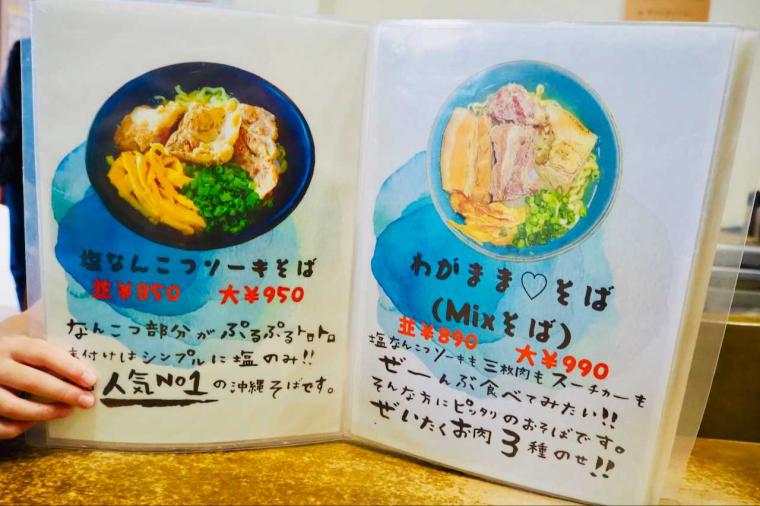 塩なんこつソーキそば
並¥850 大¥950
なんこつ部分がぷるぷるトロトロ
味付けはシンプルに塩のみ!!
人気No1の沖縄そばです。
わがまま♡そば
(Mixそば)
並¥890 大¥990
塩なんこつソーキも三枚肉もスーチカーも
ぜーんぶ食べてみたい!!
そんな方にピッタリのおそばです。
ぜいたくお肉3種のせ!!